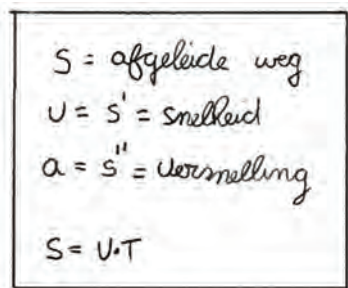 S = afgeleide weg
U = S' = snelheid
a = S'' = versnelling
S = U.T